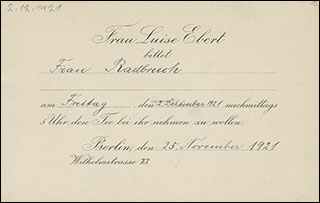 2.12.1921
Frau Luise Ebert
bittet
Frau Radbruch
am Freitag, den 2. Dezember 1921 nachmittags
5 Uhr den Tee bei ihr nehmen zu wollen.
Berlin, den 25. November 1921
Wilhelmstrasse 73.